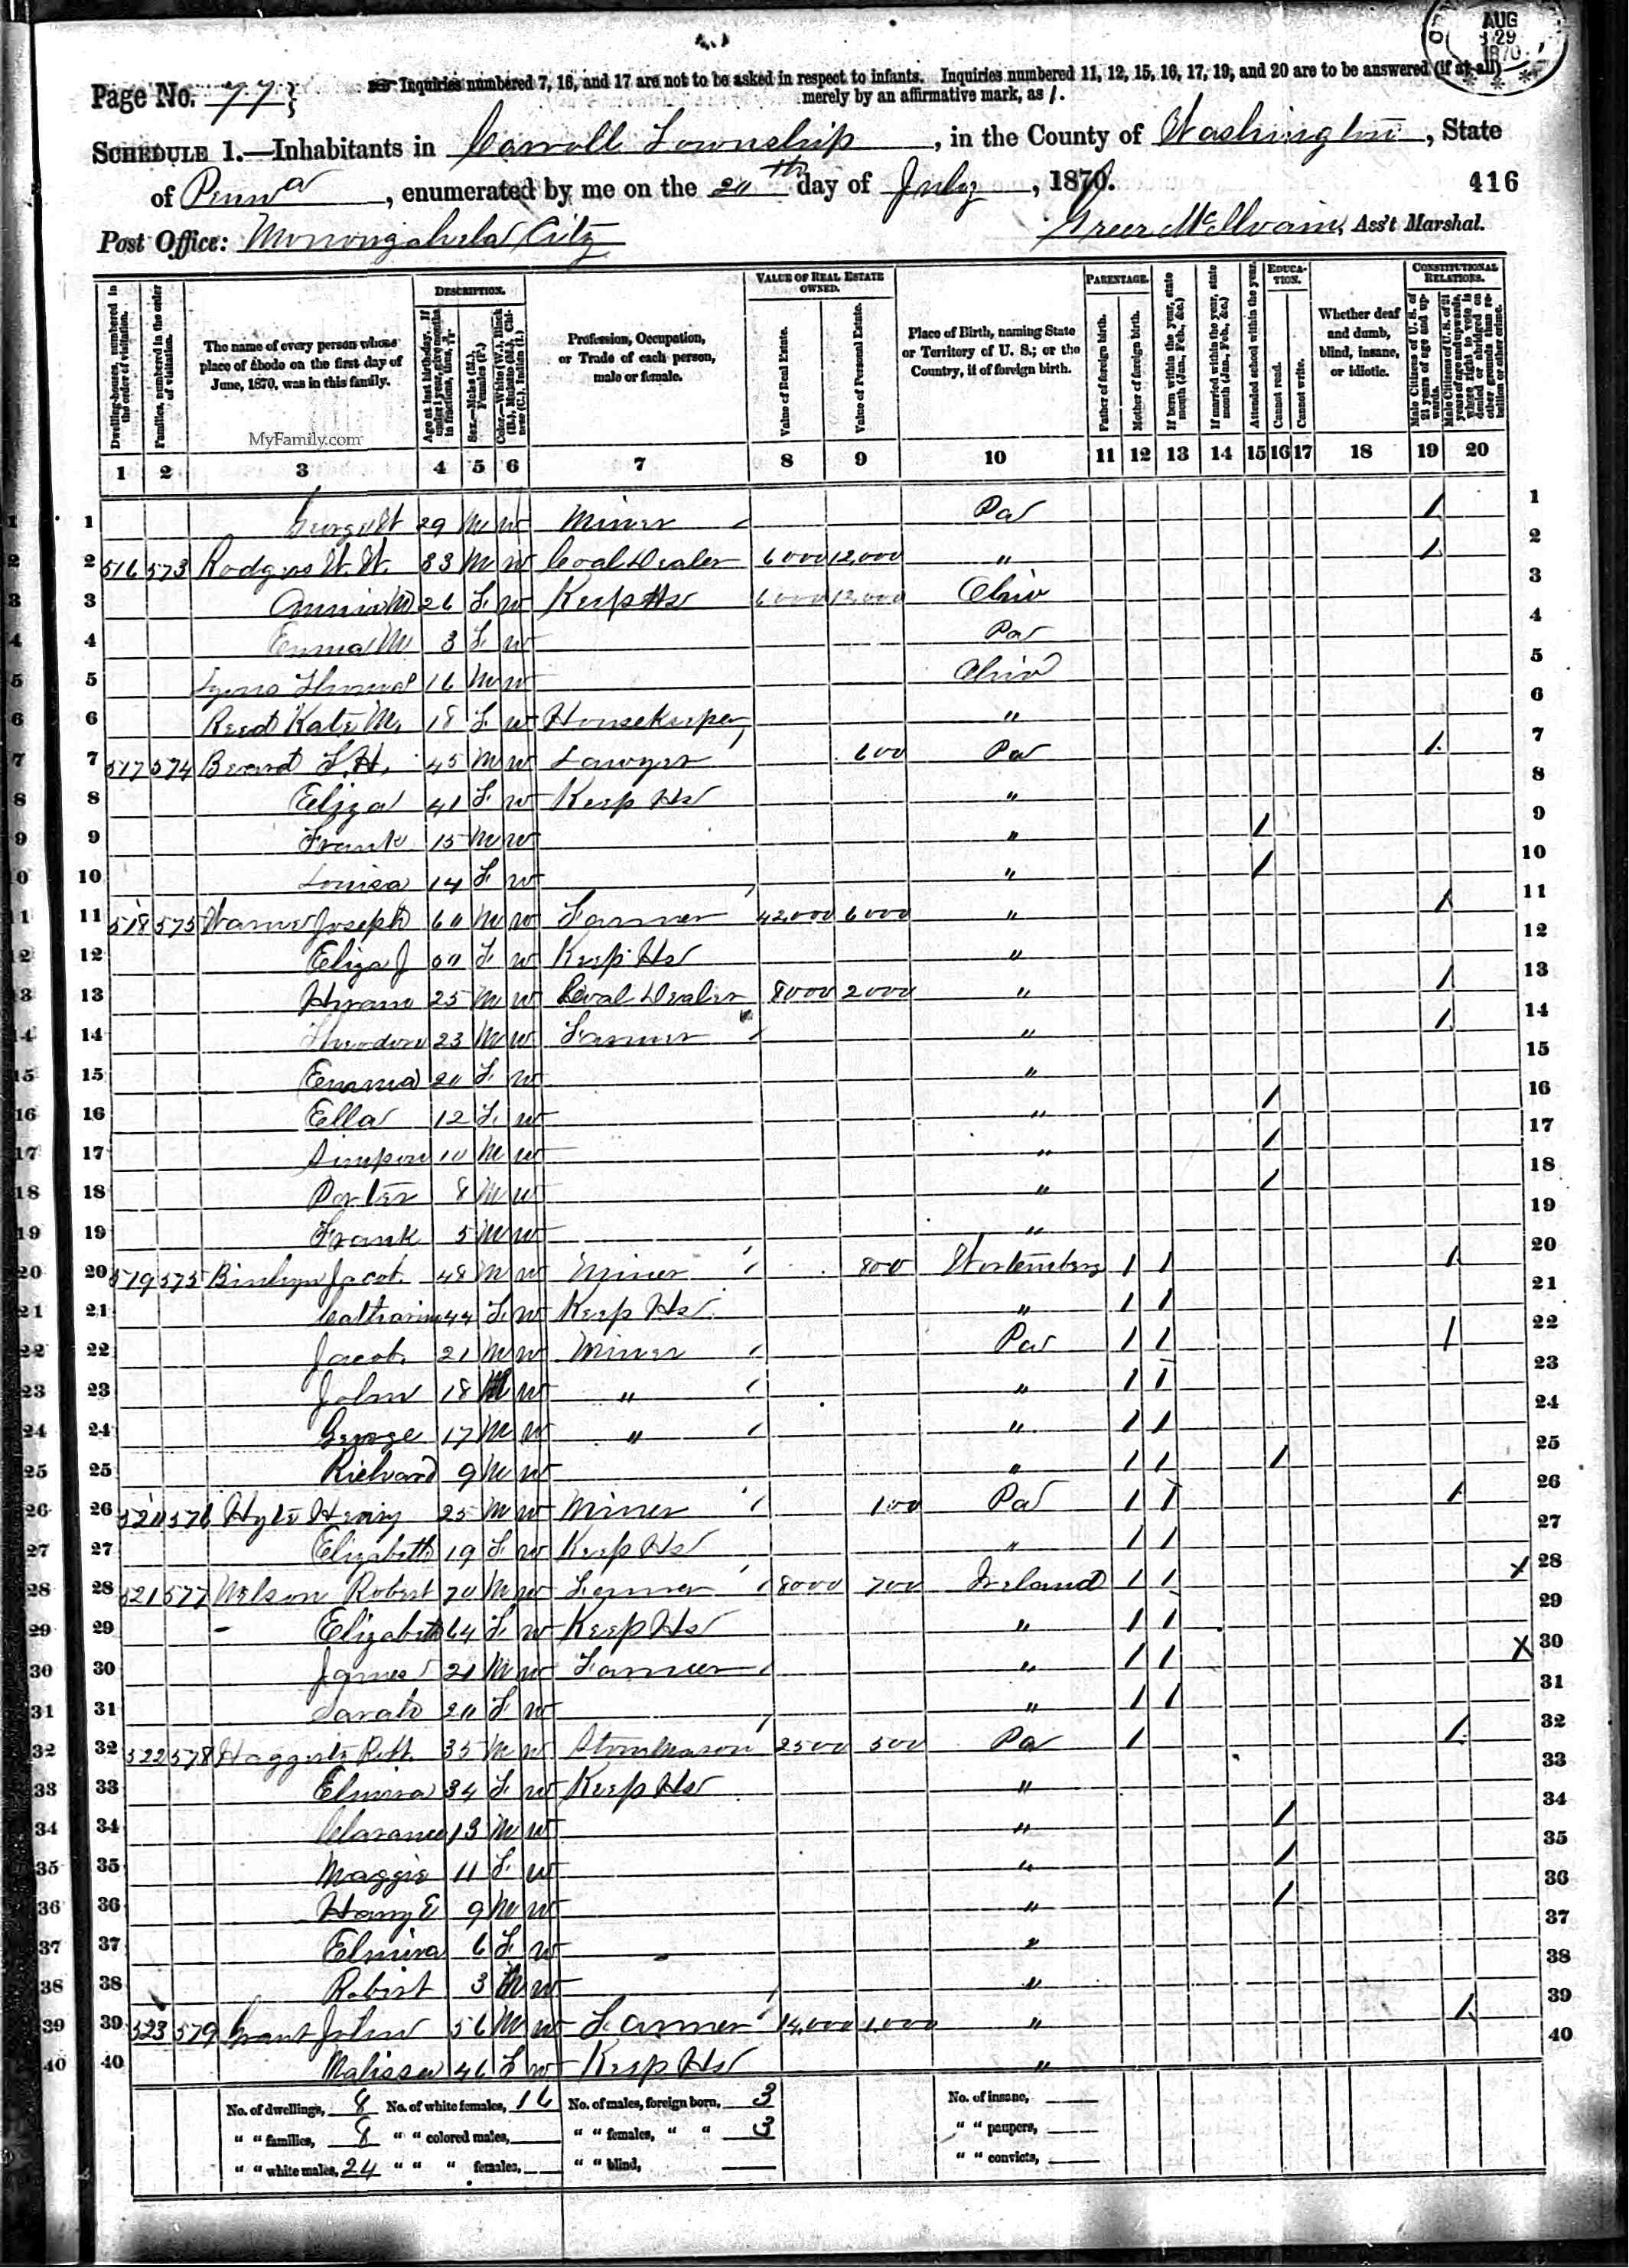 AUG
29
1870
Page No. 77
Inquiries numbered 7, 16, and 17 are not to be asked in respect to infants. Inquiries numbered 11, 12, 15, 16, 17, 19, and 20 are to be answered (if at all)
merely by an affirmative mark, as /.
SCHEDULE 1.—Inhabitants in Carroll Township, in the County of Washington, State
of Penna, enumerated by me on the 20th day of July, 1870.
416
Post Office: Monongahela City
Greer McIlvain, Ass't Marshal.
Dwelling-houses, numbered in the order of visitation.
Families, numbered in the order of visitation.
The name of every person whose place of abode on the first day of June, 1870, was in this family.
MyFamily.com
DESCRIPTION.
Age at last birthday. If under 1 year, give months in fractions, thus, 3/12
Sex.—Males (M.), Females (F.)
Color.—White (W.), Black (B.), Mulatto (M.), Chinese (C.), Indian (I.)
Profession, Occupation, or Trade of each person, male or female.
VALUE OF REAL ESTATE OWNED.
Value of Real Estate.
Value of Personal Estate.
Place of Birth, naming State or Territory of U. S.; or the Country, if of foreign birth.
PARENTAGE.
Father of foreign birth.
Mother of foreign birth.
If born within the year, state month (Jan., Feb., &c.)
If married within the year, state month (Jan., Feb., &c.)
Attended school within the year.
EDUCATION.
Cannot read.
Cannot write.
Whether deaf and dumb, blind, insane, or idiotic.
CONSTITUTIONAL RELATIONS.
Male Citizens of U. S. of 21 years of age and upwards.
Male Citizens of U. S. of 21 years of age and upwards, where right to vote is denied or abridged on other grounds than rebellion or other crime.
1 2 3 4 5 6 7 8 9 10 11 12 13 14 15 16 17 18 19 20
1 George W 29 M W Miner Pa / 1
2 516 573 Rodgers W. W. 33 M W Coal Dealer 6000 12,000 " / 2
3 Annie M 26 F W Keep Hs 6000 12,000 Ohio 3
4 Emma M 3 F W Pa 4
5 16 M W Ohio 5
6 Reed Kate M. 18 F W Housekeeper " 6
7 517 574 L. H. 45 M W Lawyer 600 Pa / 7
8 Eliza 41 F W Keep Hs " 8
9 Frank 15 M W " / 9
10 Louisa 14 F W " / 10
11 518 575 Joseph 60 M W Farmer 42,000 6000 " / 11
12 Eliza J F W Keep Hs " 12
13 Hiram 25 M W Coal Dealer 8000 2000 " / 13
14 Theodore 23 M W Farmer " / 14
15 Emma 20 F W " 15
16 Ella 12 F W " / 16
17 Simpson 10 M W " / 17
18 Porter 8 M W " / 18
19 Frank 5 M W " 19
20 519 575 Jacob 48 M W Miner 800 Wortemberg / / / 20
21 Catharine 44 F W Keep Hs " / / 21
22 Jacob 21 M W Miner Pa / / / 22
23 John 18 M W " " / / 23
24 George 17 M W " " / / 24
25 Richard 9 M W " / / / 25
26 520 576 Henry 25 M W Miner 100 Pa / / / 26
27 Elizabeth 19 F W Keep Hs " / / 27
28 521 577 Nelson Robert 70 M W Farmer 8000 700 Ireland / / X 28
29 Elizabeth 64 F W Keep Hs " / / 29
30 James 21 M W Farmer " / / X 30
31 Sarah 20 F W " / / 31
32 522 578 Robt. 35 M W Stone Mason 2500 500 Pa / / 32
33 Elmira 34 F W Keep Hs " 33
34 Clarance 13 M W " / 34
35 Maggie 11 F W " / 35
36 Harry E 9 M W " / 36
37 Elmira 6 F W " 37
38 Robert 3 M W " 38
39 523 579 Grant John 56 M W Farmer 14,000 1,000 " / 39
40 Malissa 46 F W Keep Hs " 40
No. of dwellings, 8 No. of white females, 16 No. of males, foreign born, 3 No. of insane,
" " families, 8 " " colored males, " " females, " " 3 " " paupers,
" " white males, 24 " " " females, " " blind, " " convicts,